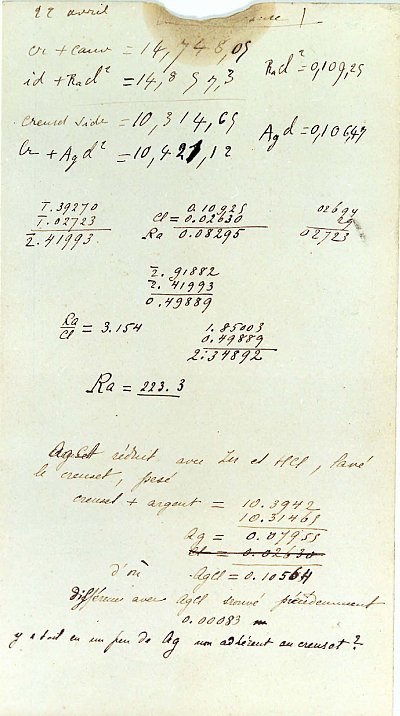 22 avril
cr + couv = 14,748,05
id + RaCl² = 14,857,3
RaCl² = 0,109,25
creuset vide = 10,314,65
Cr + AgCl² = 10,421,12
AgCl = 0,10647
1.39270
1.02723
2.41993
0.10925
Cl = 0.02630
Ra 0.08295
02694
29
02723
2.91882
2.41993
0.49889
Ra/Cl = 3.154
1.85003
0.49889
2.34892
Ra = 223.3
AgCl réduit avec Zn et HCl, lavé
le creuset, pesé
creuset + argent = 10.3942
10.31465
Ag = 0.07955
Cl = 0.02630
d'où AgCl = 0.10564
différence avec AgCl trouvé précédemment
0.00083
y a-t-il eu un peu de Ag non adhérent au creuset ?